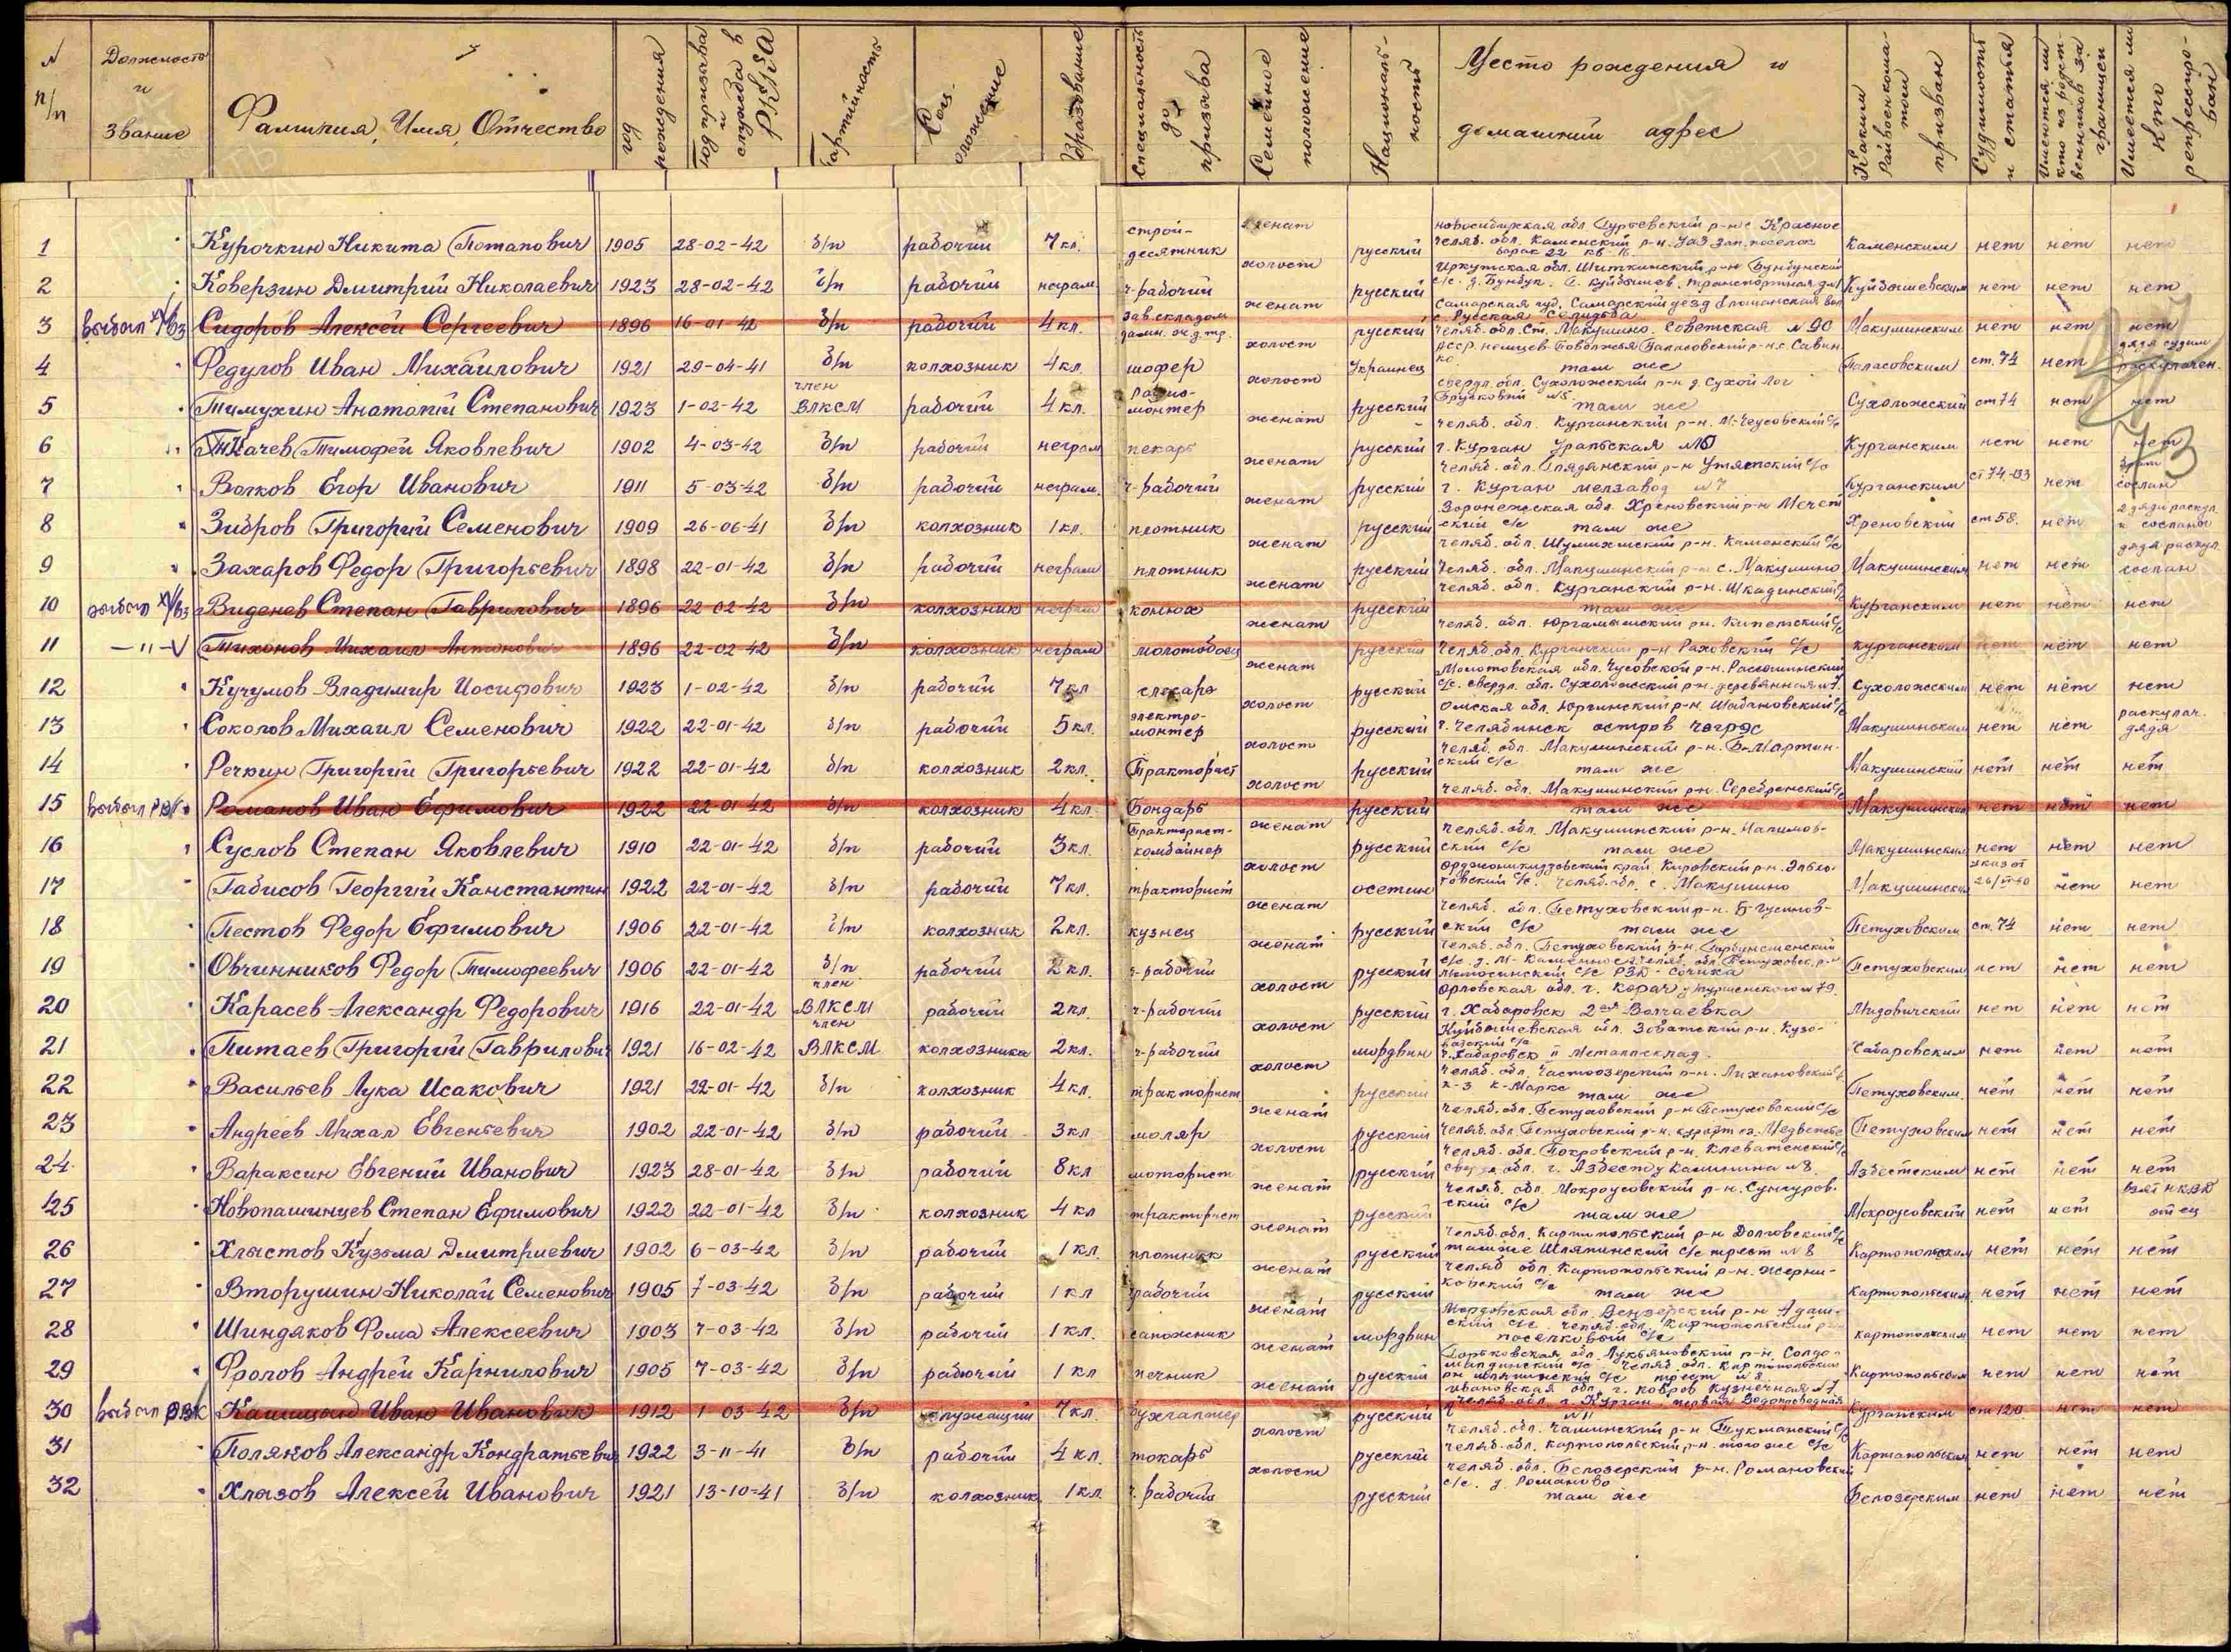 N п/п Должность и звание Фамилия, Имя, Отчество год рождения Год призыва и служба в РККА Партийность Соц. положение Образование Специальность до призыва Семейное положение Националь-ность Место рождения и домашний адрес Каким Райвоенкома-том призван Судимость и статья Имеются ли кто из родст-венников за границей Имеется ли кто репрессиро-ван
1 Курочкин Никита Потапович 1905 28-02-42 б/п рабочий 7 кл. строй-десятник женат русский Новосибирская обл. Гурьевский р-н с. Красное Челяб. обл. Каменский р-н. УАЗ зап. поселок барак 22 кв-16 Каменским нет нет нет
2 Коверзин Дмитрий Николаевич 1923 28-02-42 б/п рабочий неграм. ч-рабочий холост русский Иркутская обл. Шиткинский р-н Бунбуйский с/с. д. Бунбуй. г. Куйбышев, транспортная Куйбышевским нет нет нет
3 выбыл Сидоров Алексей Сергеевич 1896 16-01-42 б/п рабочий 4 кл. зав. складом женат русский Самарская губ. Самарский уезд с. Русская Селидьба Челяб. обл. Ст. Макушино. Советская № 90 Макушинским нет нет нет
4 Федулов Иван Михайлович 1921 29-04-41 б/п колхозник 4 кл. шофер холост Украинец АССР. немцев-Поволжья Паласовский р-н. с. Савин-ко там же Паласовским ст. 74 нет дядя судим раскулачен.
5 Тимухин Анатолий Степанович 1923 1-02-42 член ВЛКСМ рабочий 4 кл. Радио-монтер холост русский Свердл. обл. Сухоложский р-н д. Сухой Лог там же Сухоложский ст 74 нет нет
6 Ткачев Тимофей Яковлевич 1902 4-03-42 б/п рабочий неграм пекарь женат русский Челяб. обл. Курганский р-н. М-Чеусовский с/с г. Курган Уральская Курганским нет нет нет
7 Волков Егор Иванович 1911 5-03-42 б/п рабочий неграм. ч-рабочий женат русский Челяб. обл. Глядянский р-н Утятский с/с г. Курган мелзавод № 7 Курганским нет брат сослан
8 Зибров Григорий Семенович 1909 26-06-41 б/п колхозник 1 кл. плотник женат русский Воронежская обл. Хреновский р-н Мечет-ский с/с там же Хреновский ст 58. нет 2 дяди раскул. и сосланы
9 Захаров Федор Григорьевич 1898 22-01-42 б/п рабочий неграм плотник женат русский Челяб. обл. Шумихинский р-н. Каменский с/с Челяб. обл. Макушинский р-н с. Макушино Макушинским нет нет дядя раскул. сослан
10 выбыл Виденев Степан Гаврилович 1896 22-02-42 б/п колхозник неграм конюх женат русский Челяб. обл. Курганский р-н. Шкадинский с/с там же Курганским нет нет нет
11 — " — Тихонов Михаил Антонович 1896 22-02-42 б/п колхозник неграм молотобоец женат русский Челяб. обл. Юргамышский р-н. Кипельский с/с Челяб. обл. Курганский р-н Раховский с/с Курганским нет нет нет
12 Кучумов Владимир Иосифович 1923 1-02-42 б/п рабочий 7 кл слесарь женат русский Молотовская обл. Чусовской р-н. с/с. Свердл. обл. Сухоложский р-н. деревянная №7. Сухоложским нет нет нет
13 Соколов Михаил Семенович 1922 22-01-42 б/п рабочий 5 кл. электро-монтер холост русский Омская обл. Юргинский р-н. Шабановский с/с г. Челябинск остров ЧГРЭС Макушинским нет нет раскулач. дядя
14 Речкин Григорий Григорьевич 1922 22-01-42 б/п колхозник 2 кл. Тракторист холост русский Челяб. обл. Макушинский р-н. Б-Мартин-ский с/с там же Макушинский нет нет нет
15 выбыл РВК Романов Иван Ефимович 1922 22-01-42 б/п колхозник 4 кл. Бондарь холост русский Челяб. обл. Макушинский р-н. Серебренский с/с там же Макушинским нет нет нет
16 Суслов Степан Яковлевич 1910 22-01-42 б/п рабочий 3 кл. Тракторист-комбайнер женат русский Челяб. обл. Макушинский р-н. Налимов-ский с/с там же Макушинским нет нет нет
17 Габисов Георгий Канстантин 1922 22-01-42 б/п рабочий 7 кл. тракторист холост осетин Орджоникидзовский край, Кировский р-н. Эльхо-товский с/с. Челяб. обл. с. Макушино Макушинским указ от нет нет
18 Пестов Федор Ефимович 1906 22-01-42 б/п колхозник 2 кл. кузнец женат русский Челяб. обл. Петуховский р-н. Б-Гусинов-ский с/с там же Петуховским ст. 74 нет нет
19 Овчинников Федор Тимофеевич 1906 22-01-42 б/п рабочий 2 кл. ч-рабочий женат русский Челяб. обл. Петуховский р-н. с/с. д. М-Каменное Челяб. обл. Петуховск. р-н Петуховским нет нет нет
20 Карасев Александр Федорович 1916 22-01-42 член ВЛКСМ рабочий 2 кл. ч-рабочий холост русский Орловская обл. г. Корач № 79. г. Хабаровск 2ая Волчаевка нет нет нет
21 Питаев Григорий Гаврилович 1921 16-02-42 член ВЛКСМ колхозника 2 кл. ч-рабочий холост мордвин Куйбышевская обл. р-н. г. Хабаровск п Металлсклад. Хабаровским нет нет нет
22 Васильев Лука Исакович 1921 22-01-42 б/п колхозник 4 кл. тракторист холост русский Челяб. обл. Частоозерский р-н. Лихановский с/с к-з К-Маркс там же Петуховским. нет нет нет
23 Андреев Михал Евгеньевич 1902 22-01-42 б/п рабочий 3 кл маляр женат русский Челяб. обл. Петуховский р-н Петуховский с/с Челяб. обл. Петуховский р-н. курорт оз. Медвежье Петуховским нет нет нет
24. Вараксин Евгений Иванович 1923 28-01-42 б/п рабочий 8 кл моторист холост русский Челяб. обл. Покровский р-н. Клеватенский с/с Свердл. обл. г. Азбест у Калинина № 8. Азбестским нет нет нет
25 Новопашинцев Степан Ефимович 1922 22-01-42 б/п колхозник 4 кл тракторист женат русский Челяб. обл. Мокроусовский р-н. Сунгуров-ский с/с там же Мокроусовский нет нет взят НКВД отец
26 Хлыстов Кузьма Дмитриевич 1902 6-03-42 б/п рабочий 1 кл. плотник женат русский Челяб. обл. Каргапольский р-н Долговский с/с там же Шляпинский с/с трест № 8 Картопольским нет нет нет
27 Вторушин Николай Семенович 1905 7-03-42 б/п рабочий 1 кл ч-рабочий женат русский Челяб обл. Картопольский р-н. Жерни-ковский с/с там же Картопольским. нет нет нет
28 Шиндяков Фома Алексеевич 1903 7-03-42 б/п рабочий 1 кл. сапожник женат мордвин Мордовская обл. р-н Адаш-ский с/с. Челяб. обл. Картопольский р-н поселковый с/с Картопольским нет нет нет
29 Фролов Андрей Карнилович 1905 7-03-42 б/п рабочий 1 кл печник женат русский Горьковская обл. Лукьяновский р-н. с/с Челяб. обл. Картопольский р-н Шляпинский с/с трест № 8 Картопольским нет нет нет
30 выбыл РВК Кашицын Иван Иванович 1912 1-03-42 б/п служащий 7 кл. бухгалтер женат русский Ивановская обл. г. Ковров Кузнечная №7 Челяб. обл. г. Курган первая Водопроводная № 11 Курганским ст 120 нет нет
31 Поляков Александр Кондратьевич 1922 3-11-41 б/п рабочий 4 кл. токарь холост русский Челяб. обл. Чашинский р-н Тукманский с/с Челяб. обл. Картопольский р-н. того же с/с Картопольским нет нет нет
32 Хлызов Алексей Иванович 1921 13-10-41 б/п колхозник 1 кл. ч. рабочий холост русский Челяб. обл. Белозерский р-н. Романовский с/с. д. Романово там же Белозерским нет нет нет